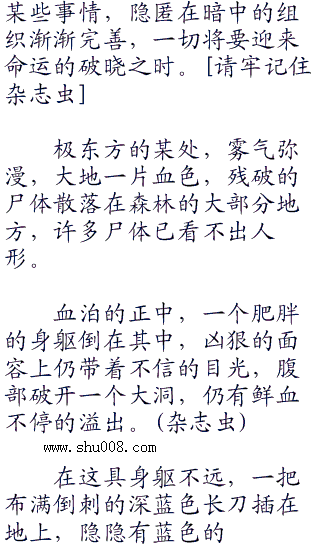 某些事情，隐匿在暗中的组
织渐渐完善，一切将要迎来
命运的破晓之时。[请牢记住
杂志虫]
极东方的某处，雾气弥
漫，大地一片血色，残破的
尸体散落在森林的大部分地
方，许多尸体已看不出人
形。
血泊的正中，一个肥胖
的身躯倒在其中，凶狠的面
容上仍带着不信的目光，腹
部破开一个大洞，仍有鲜血
不停的溢出。(杂志虫)
www.shu008.com
在这具身躯不远，一把
布满倒刺的深蓝色长刀插在
地上，隐隐有蓝色的